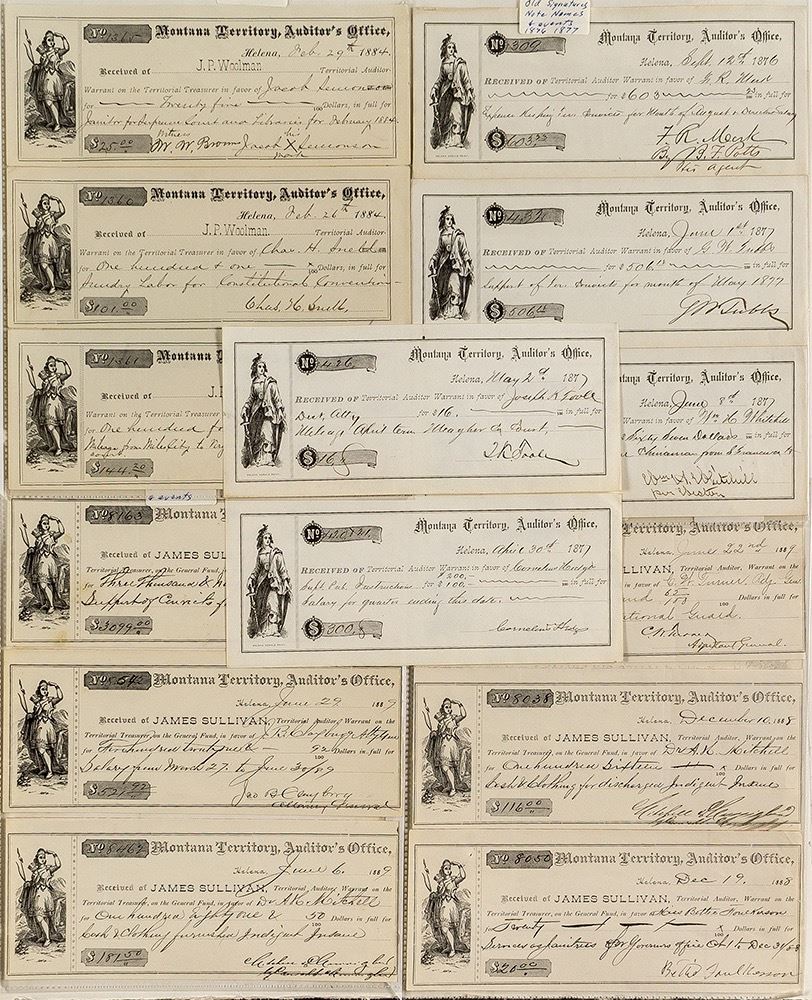 Old Signatures
Note Names
& events
1876 1877
No 1365 Montana Territory, Auditor's Office,
Helena, Feb. 29th 1884.
Received of J. P. Woolman Territorial Auditor
Warrant on the Territorial Treasurer in favor of Jacob
for Twenty five 100 Dollars, in full for
Janitor for Supreme Court and Libraries for February 1884.
Witness his
$25.00 W. W. Brown Jacob X
mark
No 1360 Montana Territory, Auditor's Office,
Helena, Feb. 26th 1884.
Received of J. P. Woolman. Territorial Auditor-
Warrant on the Territorial Treasurer in favor of Chas. H. Snell
for One hundred & one 100 Dollars, in full for
Sundry Labor for Constitutional Convention
$101.00 Chas. H. Snell
No 1361 Montana T
Received of J. I
Warrant on the Territorial Treasurer
for One hundred fo
Mileage from Miles City to
$144.20
& events
No 8163 Montana T
Received of JAMES SUL
Territorial Treasurer, on the General Fund,
for Three Thousand &
Support of Convicts
$3099.00
No 8542 Montana Territory, Auditor's Office,
Helena, June 29 1889
Received of JAMES SULLIVAN, Territorial Auditor, Warrant on the
Territorial Treasurer, on the General Fund, in favor of
for Five hundred twenty one & 92 Dollars in full for
Salary from March 27. to June 30/89
$521.92
No 8467 Montana Territory, Auditor's Office,
Helena, June 6. 1889
Received of JAMES SULLIVAN, Territorial Auditor, Warrant on the
Territorial Treasurer, on the General Fund, in favor of Dr A. H. Mitchell
for One hundred eighty one & 50 Dollars in full for
Cash & Clothing furnished Indigent Insane
$181.50
No 309 Montana Territory, Auditor's Office,
Helena, Sept. 12th 1876
RECEIVED OF Territorial Auditor Warrant in favor of
for $603 in full for
for Month of August
$603
By B. F. Potts
his agent
No 432 Montana Territory, Auditor's Office,
Helena, June 1st 1877
RECEIVED OF Territorial Auditor Warrant in favor of G. W. Tubbs
for $506 in full for
Support of Ter. Convicts for month of May 1877
$506 G W Tubbs
No 426 Montana Territory, Auditor's Office,
Helena, May 2d 1877
RECEIVED OF Territorial Auditor Warrant in favor of Joseph K Toole
Dist Atty for $16. in full for
Mileage April term Meagher Co Dist.
$16 J. K. Toole
Montana Territory, Auditor's Office,
Helena, April 30th 1877
RECEIVED OF Territorial Auditor Warrant in favor of Cornelius Hedges
$200
Supt Pub. Instruction for $100 in full for
Salary for quarter ending this date.
$300 Cornelius Hedges
tana Territory, Auditor's Office,
Helena, June 8th 1877
Warrant in favor of Wm H Whitehill
Sixty Seven Dollars in full for
Chinaman from S Francisco
Territory, Auditor's Office,
Helena, June 22nd 1889
LLIVAN, Territorial Auditor, Warrant on the
in favor of C. W. Turner
Dollars in full for
ational Guard.
C. W. Turner
Adjutant General.
No 8038 Montana Territory, Auditor's Office,
Helena, December 10, 1888
Received of JAMES SULLIVAN, Territorial Auditor, Warrant on the
Territorial Treasurer, on the General Fund, in favor of Dr A. H. Mitchell
for One hundred Sixteen Dollars in full for
Cash & Clothing for discharged Indigent Insane
$116.00
No 8050 Montana Territory, Auditor's Office,
Helena, Dec 19, 1888
Received of JAMES SULLIVAN, Territorial Auditor, Warrant on the
Territorial Treasurer, on the General Fund, in favor of Miss Bettie
for Twenty Dollars in full for
Services as Janitress of Governors office Oct 1 to Dec 31/88
$20.00